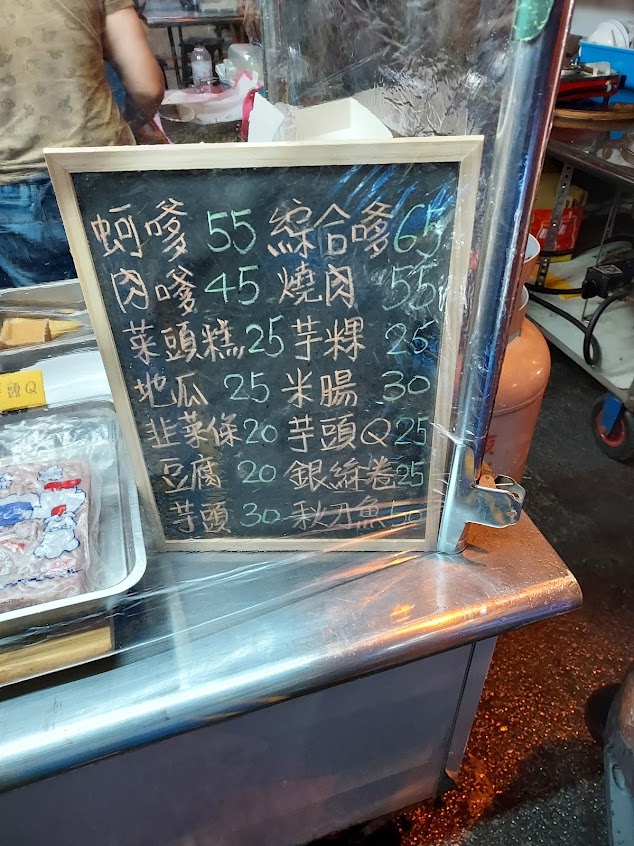 蚵嗲 55 綜合嗲 65
肉嗲 45 燒肉 55
菜頭糕 25 芋粿 25
地瓜 25 米腸 30
韭菜條 20 芋頭Q 25
豆腐 20 銀絲卷 25
芋頭 30 秋刀魚 50
頭Q